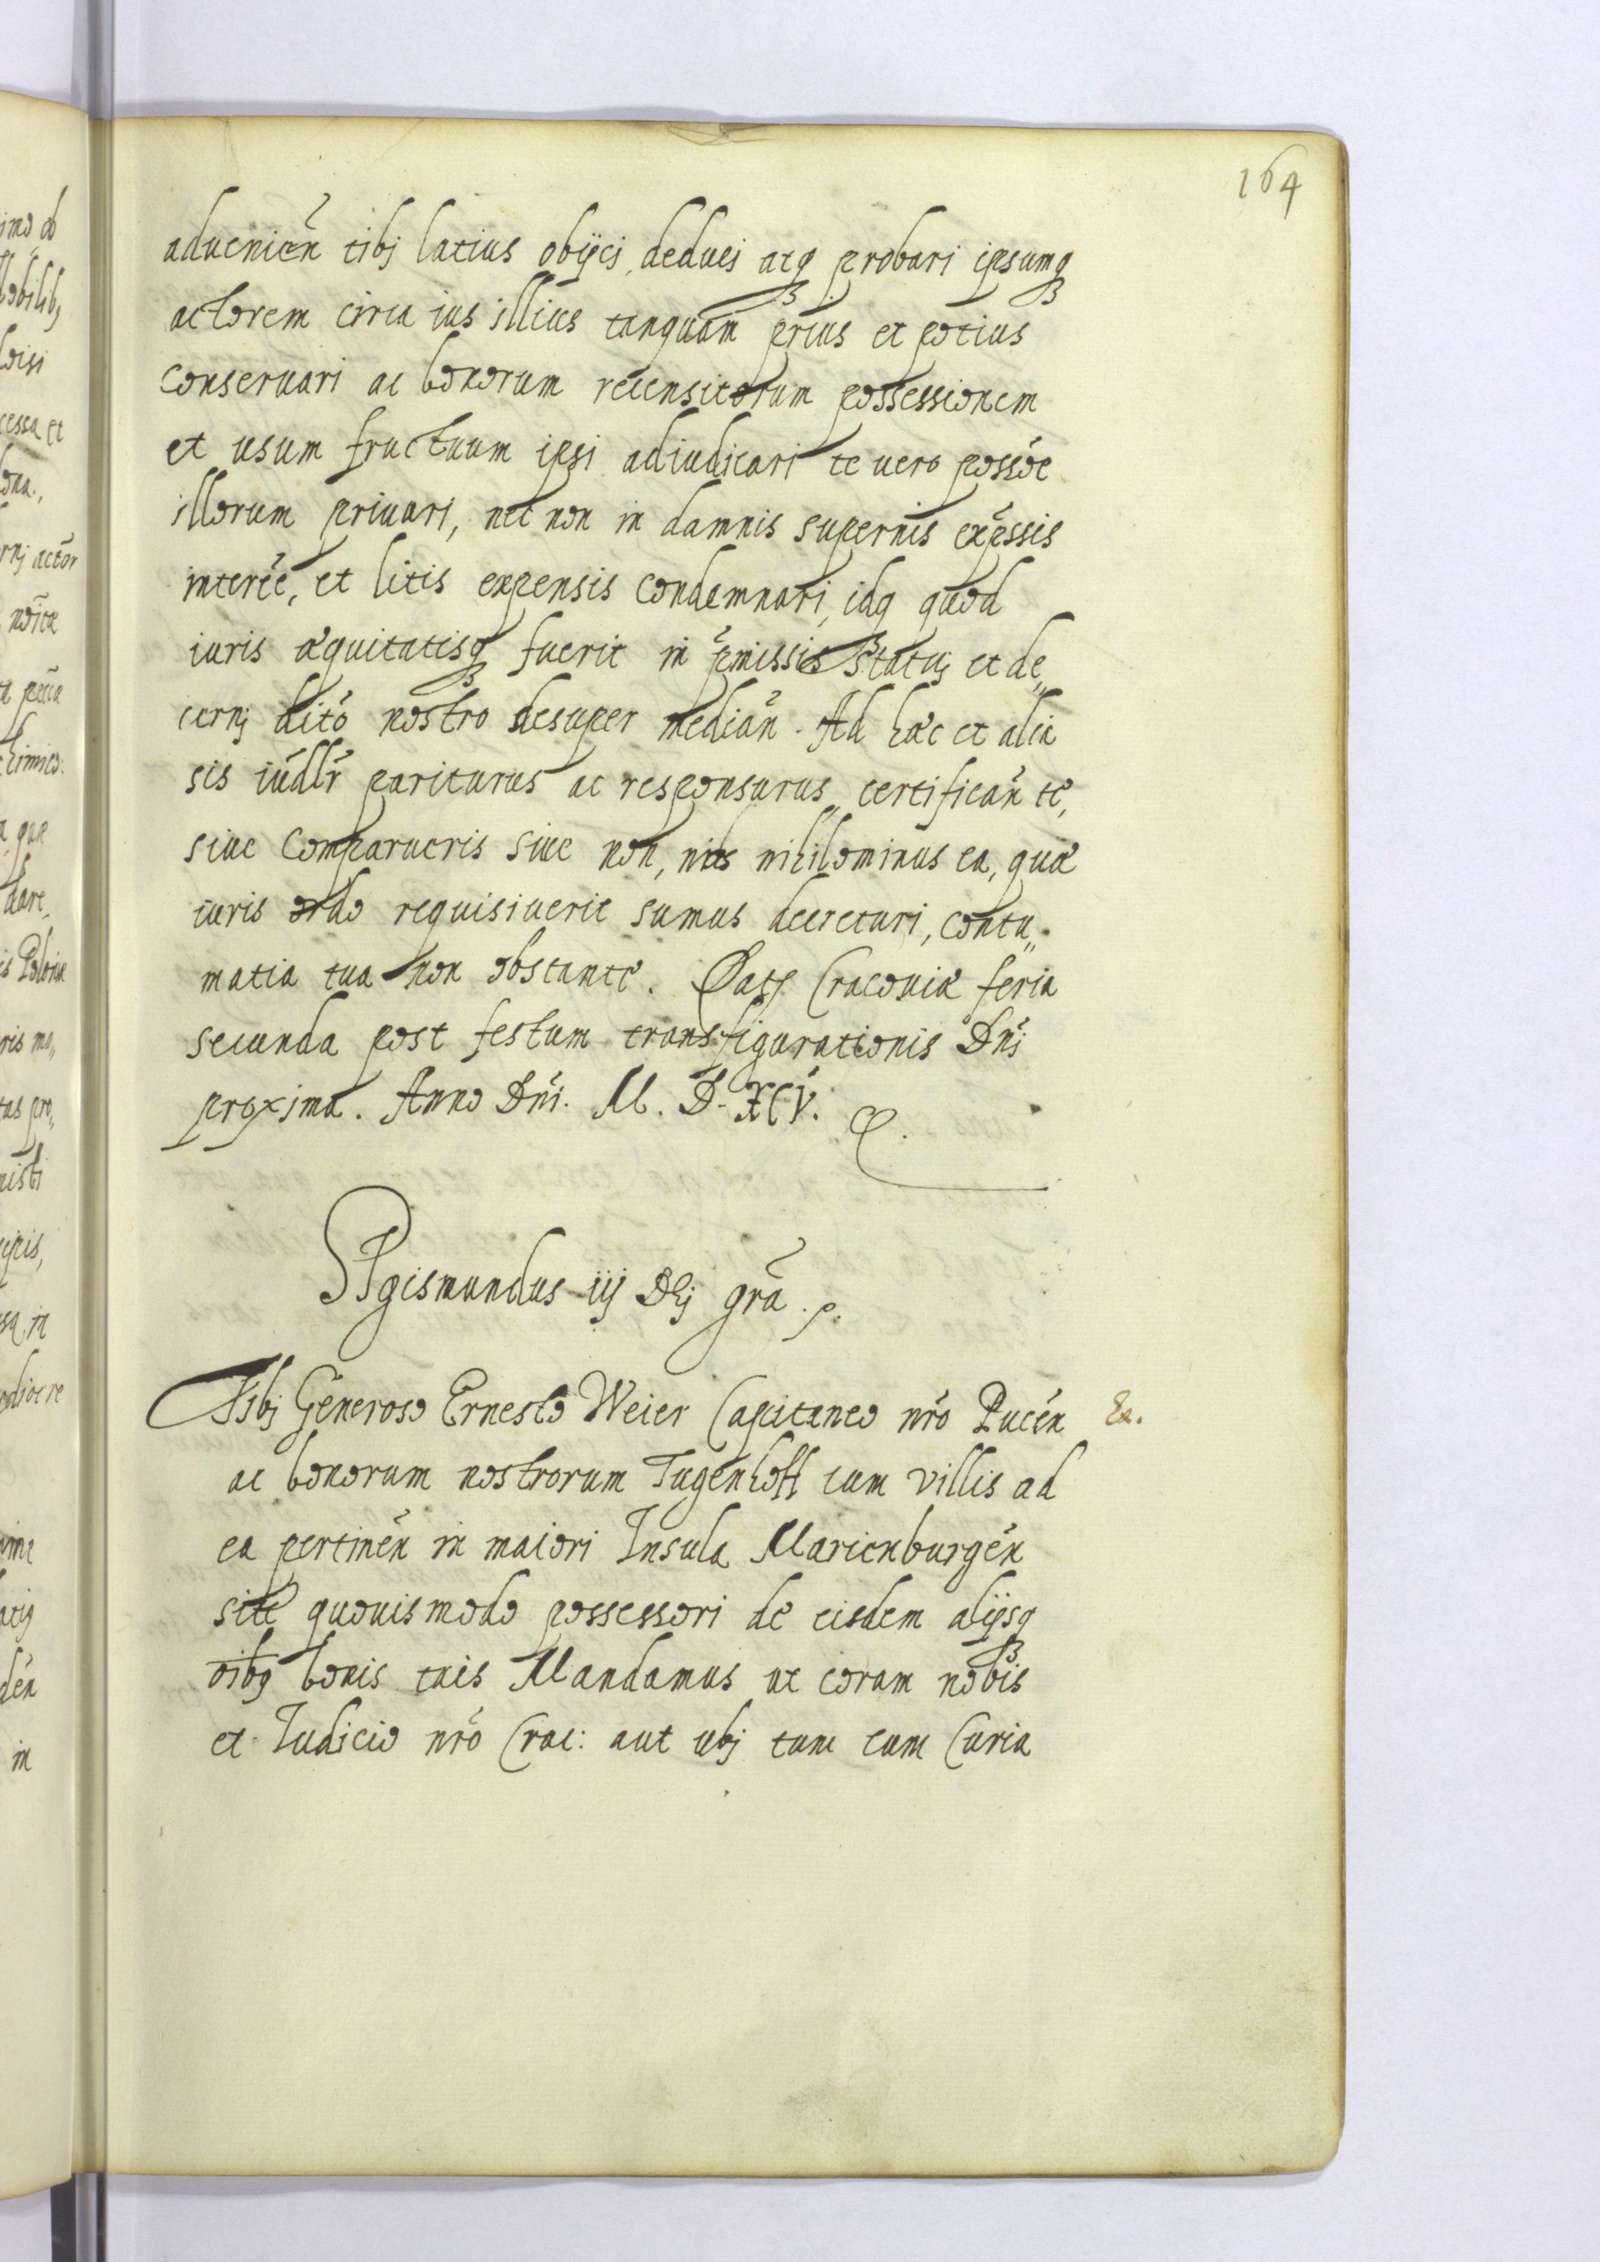 164
aduenień tibj latius obijci, deduci atq3 probari ipsumq3
actorem circa ius illius tanquam prius et potius
conseruari ac bonorum recensitorum possessionem
et usum fructuum ipsi adiudicari te uero possõe
illorum priuari, nec non in damnis supernis expssis
interẽe, et litis expensis condemnari, idq3 quod
iuris æquitatisq3 fuerit in pmissis statuj et de„
cernj dcito nostro desuper median̄. Ad hæc et alia
sis iudlr pariturus ac responsurus, certifican̄ te,
siue comparueris siue non, nos nihilominus ea, quæ
iuris ordo requisiuerit sumus decreturi, contu„
matia tua non obstante. Dat. Cracouiæ feria
secunda post festum transfigurationis Dni
proxima. Anno Dni. M. D. XCV.
SIgismundus iij Dej gra. p.
Tibj Generoso Ernesto Weier Capitaneo nro Pucen̄ Ex.
ac bonorum nostrorum Tugenhoff cum villis ad
ea pertinen̄ in maiori Insula Marienburgen̄
site quouismodo possessori de eisdem alijsq3
oibq bonis tuis Mandamus ut coram nobis
et Iudicio nro Crac: aut ubj tum cum Curia